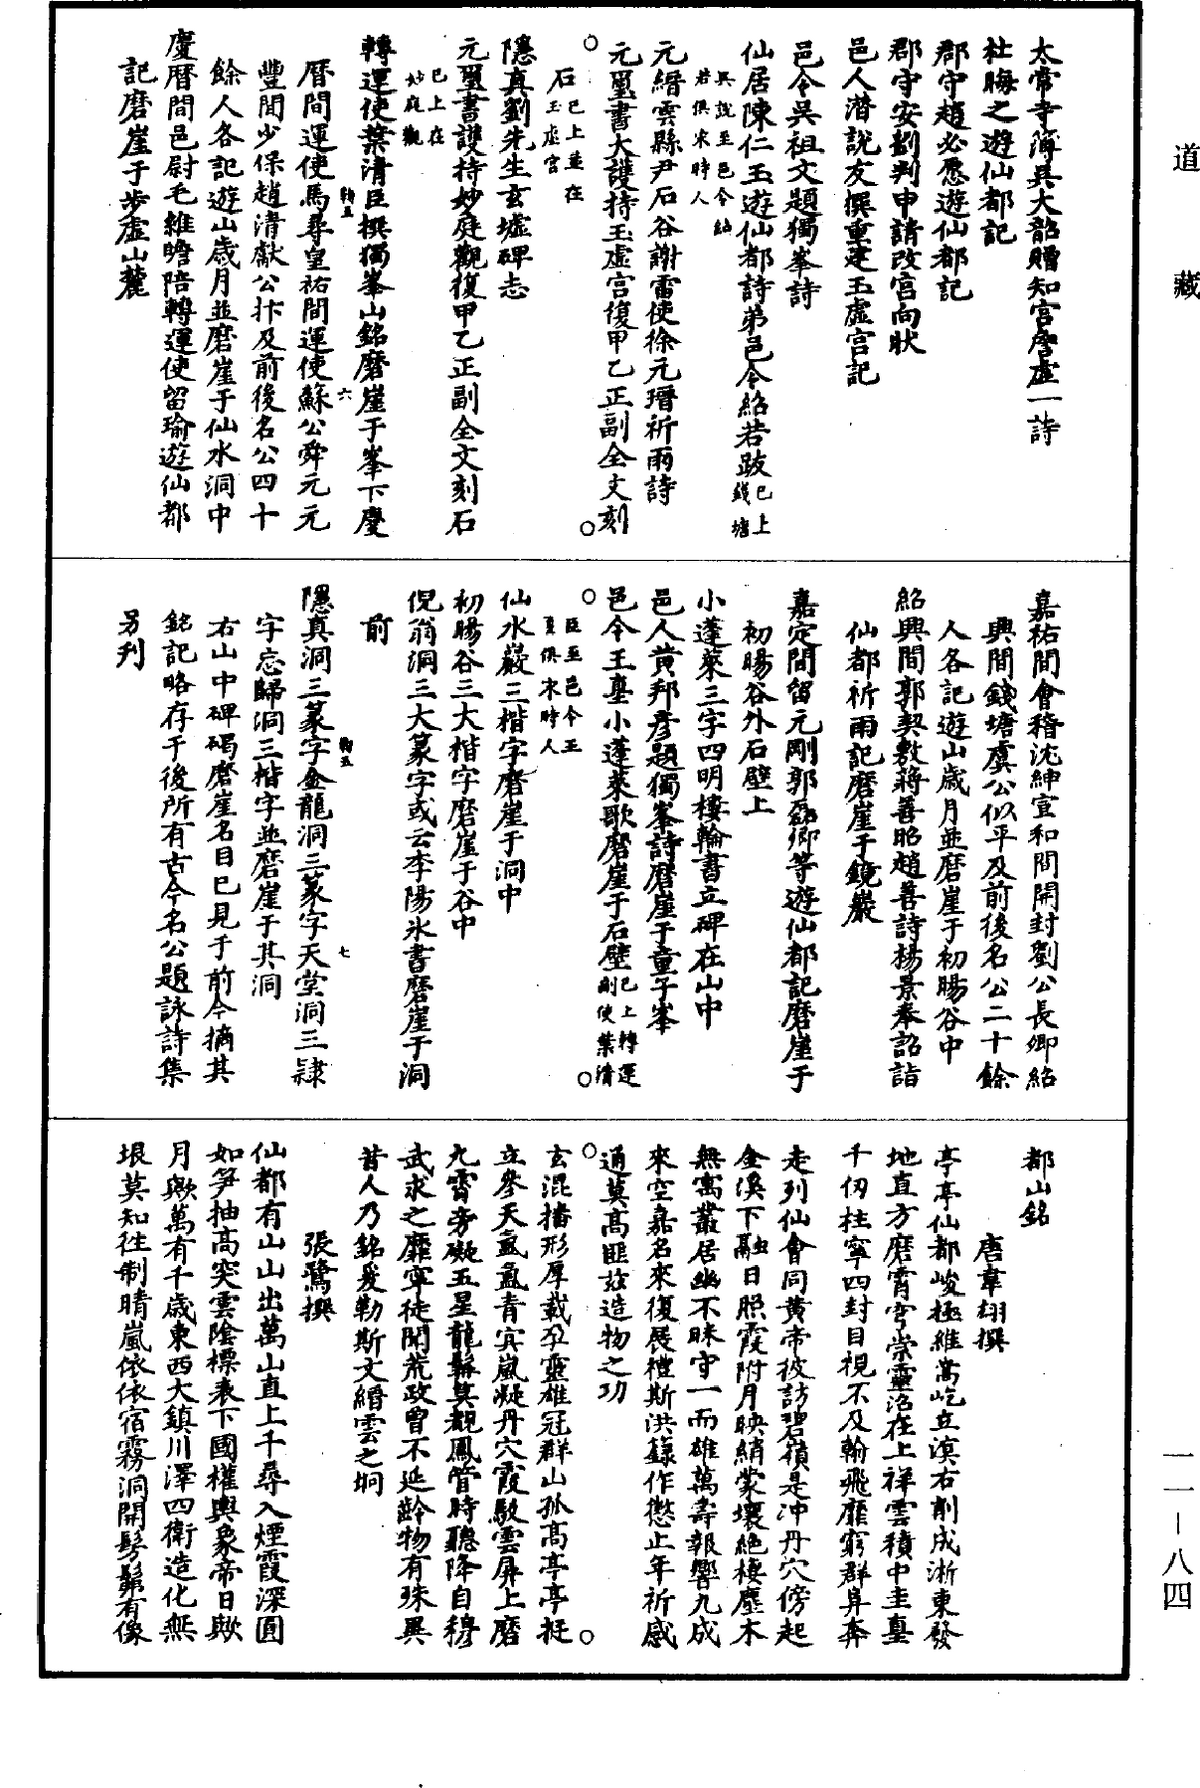 道藏
太常寺簿吳大韶贈知宮詹虛一詩
杜晦之遊仙都記
郡守趙必愿遊仙都記
郡守安劉判申請改宮向狀
邑人潛說友撰重建玉虛宮記
邑令吳祖文題獨峯詩
仙居陳仁玉遊仙都詩弟邑令紹若跋已上錢塘
吳說至邑令紹若俱宋時人
元縉雲縣尹石谷謝雷使徐元瑨祈雨詩
元璽書大護持玉虛宮復甲乙正副全文刻
石已上並在玉虛宮
隱真劉先生玄墟碑志
元璽書護持妙庭觀復甲乙正副全文刻石
已上在妙庭觀
轉運使葉清臣撰獨峯山銘磨崖于峯下慶
曆間運使馬尋皇祐間運使蘇公舜元元
豐間少保趙清獻公抃及前後名公四十
餘人各記遊山歲月並磨崖于仙水洞中
慶曆間邑尉毛維瞻陪轉運使留瑜遊仙都
記磨崖于步虛山麓
嘉祐間會稽沈紳宣和間開封劉公長卿紹
興間錢塘虞公似平及前後名公二十餘
人各記遊山歲月並磨崖于初暘谷中
紹興間郭契敷蔣善昭趙善詩楊景奉詔詣
仙都祈雨記磨崖于鏡巖
嘉定間留元剛郭磊卿等遊仙都記磨崖于
初暘谷外石壁上
小蓬萊三字四明樓輪書立碑在山中
邑人黃邦彥題獨峯詩磨崖于童子峯
邑令王𡐓小蓬萊歌磨崖于石壁已上轉運副使葉清
臣至邑令王𡐓俱宋時人
仙水巖三楷字磨崖于洞中
初暘谷三大楷字磨崖于谷中
倪翁洞三大篆字或云李陽氷書磨崖于洞
前
隱真洞三篆字金龍洞三篆字天堂洞三隸
字忘歸洞三楷字並磨崖于其洞
右山中碑碣磨崖名目已見于前今摘其
銘記略存于後所有古今名公題詠詩集
另刋
都山銘
唐韋翃撰
亭亭仙都峻極維嵩屹立溟右削成淅東發
地直方磨霄穹崇靈洛在上祥雲積中圭臬
千仞柱寧四封目視不及翰飛靡窮群阜奔
走列仙會同黃帝彼訪碧嶺是沖丹穴傍起
金溪下融日照霞附月映綃蒙壤絶棲塵木
無寓叢居幽不昧守一而雄萬壽報響九成
來空嘉名來復展禮斯洪籙作慙止年祈感
通莫高匪玆造物之功
玄混播形厚載孕靈雄冠群山孤高亭亭挺
立參天氳氳青㝠嵐凝丹穴霞駮雲屏上磨
九霄旁礙五星龍鬚莫覩鳳管時聽降自穆
武求之靡寧徒聞荒政曾不延齡物有殊異
昔人乃銘爰勒斯文縉雲之坰
張鷺撰
仙都有山山出萬山直上千尋入煙霞深圓
如笋抽高突雲陰標表下國權輿象帝日歟
月歟萬有千歲東西大鎮川澤四衛造化無
垠莫知徃制晴嵐依依宿霧洞開髣髴有像
一一—八四